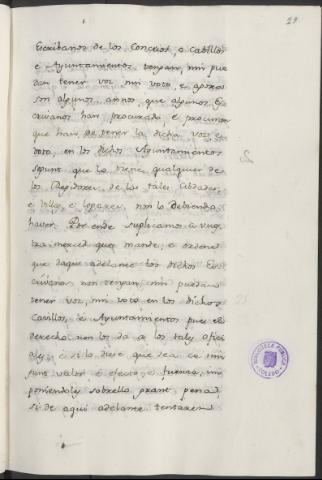 29
Escribanos de los Concejos, o Cabillos
e Ayuntamientos tengan, nin pue
dan tener voz nin voto, e agora
son algunos años, que algunos Es
crivanos han procurado e procuran
que han de tener la dicha voz e
voto, en los dichos Ayuntamientos
segunt que la tiene qualquier de
los Regidores, de las tales Cibdades,
e Villas, e Logares, non lo debiendo
haver. Por ende suplicamos a vues
tra merced que mande, e ordene
que daqui adelante los dichos Es
crivanos non tengan, nin puedan
tener voz, nin voto en los dichos
Cavillos, è Ayuntamientos pues el
derecho non los da a los tales ofici
ales, è si lo que sea en nin
gunt valor è efecto, è fuerza, im
poniendoles sobrello grant pena,
si de aqui adelante tentaren
BIBLIOTECA PUBLICA
TOLEDO